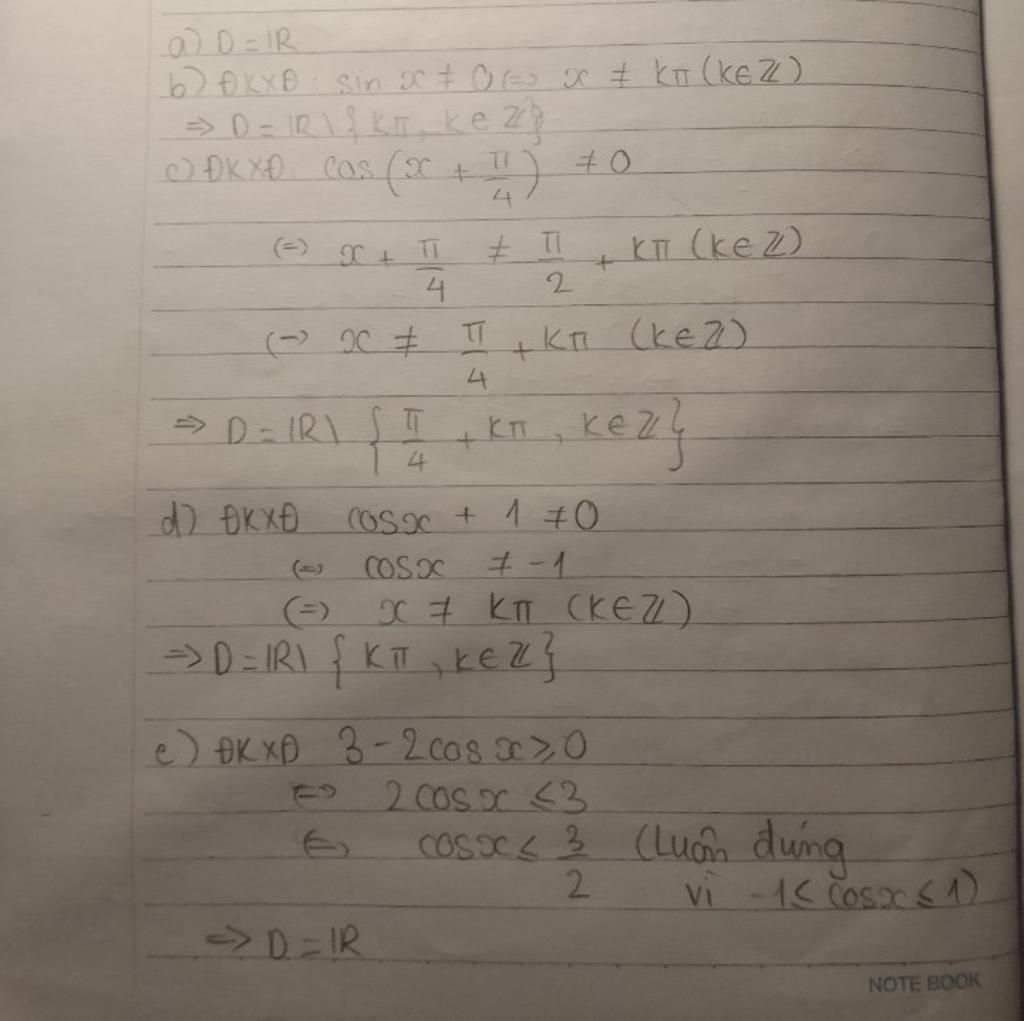 a) D = ℝ
b) ĐKXĐ: sin x ≠ 0 ⇔ x ≠ kπ (k∈ℤ)
⇒ D = ℝ\{kπ, k∈ℤ}
c) ĐKXĐ: cos(x + π/4) ≠ 0
⇔ x + π/4 ≠ π/2 + kπ (k∈ℤ)
⇔ x ≠ π/4 + kπ (k∈ℤ)
⇒ D = ℝ\{π/4 + kπ, k∈ℤ}
d) ĐKXĐ cosx + 1 ≠ 0
⇔ cosx ≠ -1
⇔ x ≠ kπ (k∈ℤ)
⇒ D = ℝ\{kπ, k∈ℤ}
e) ĐKXĐ 3 - 2cosx ≥ 0
⇔ 2cosx ≤ 3
⇔ cosx ≤ 3/2 (Luôn đúng
vì -1 ≤ cosx ≤ 1)
⇒ D = ℝ
NOTE BOOK